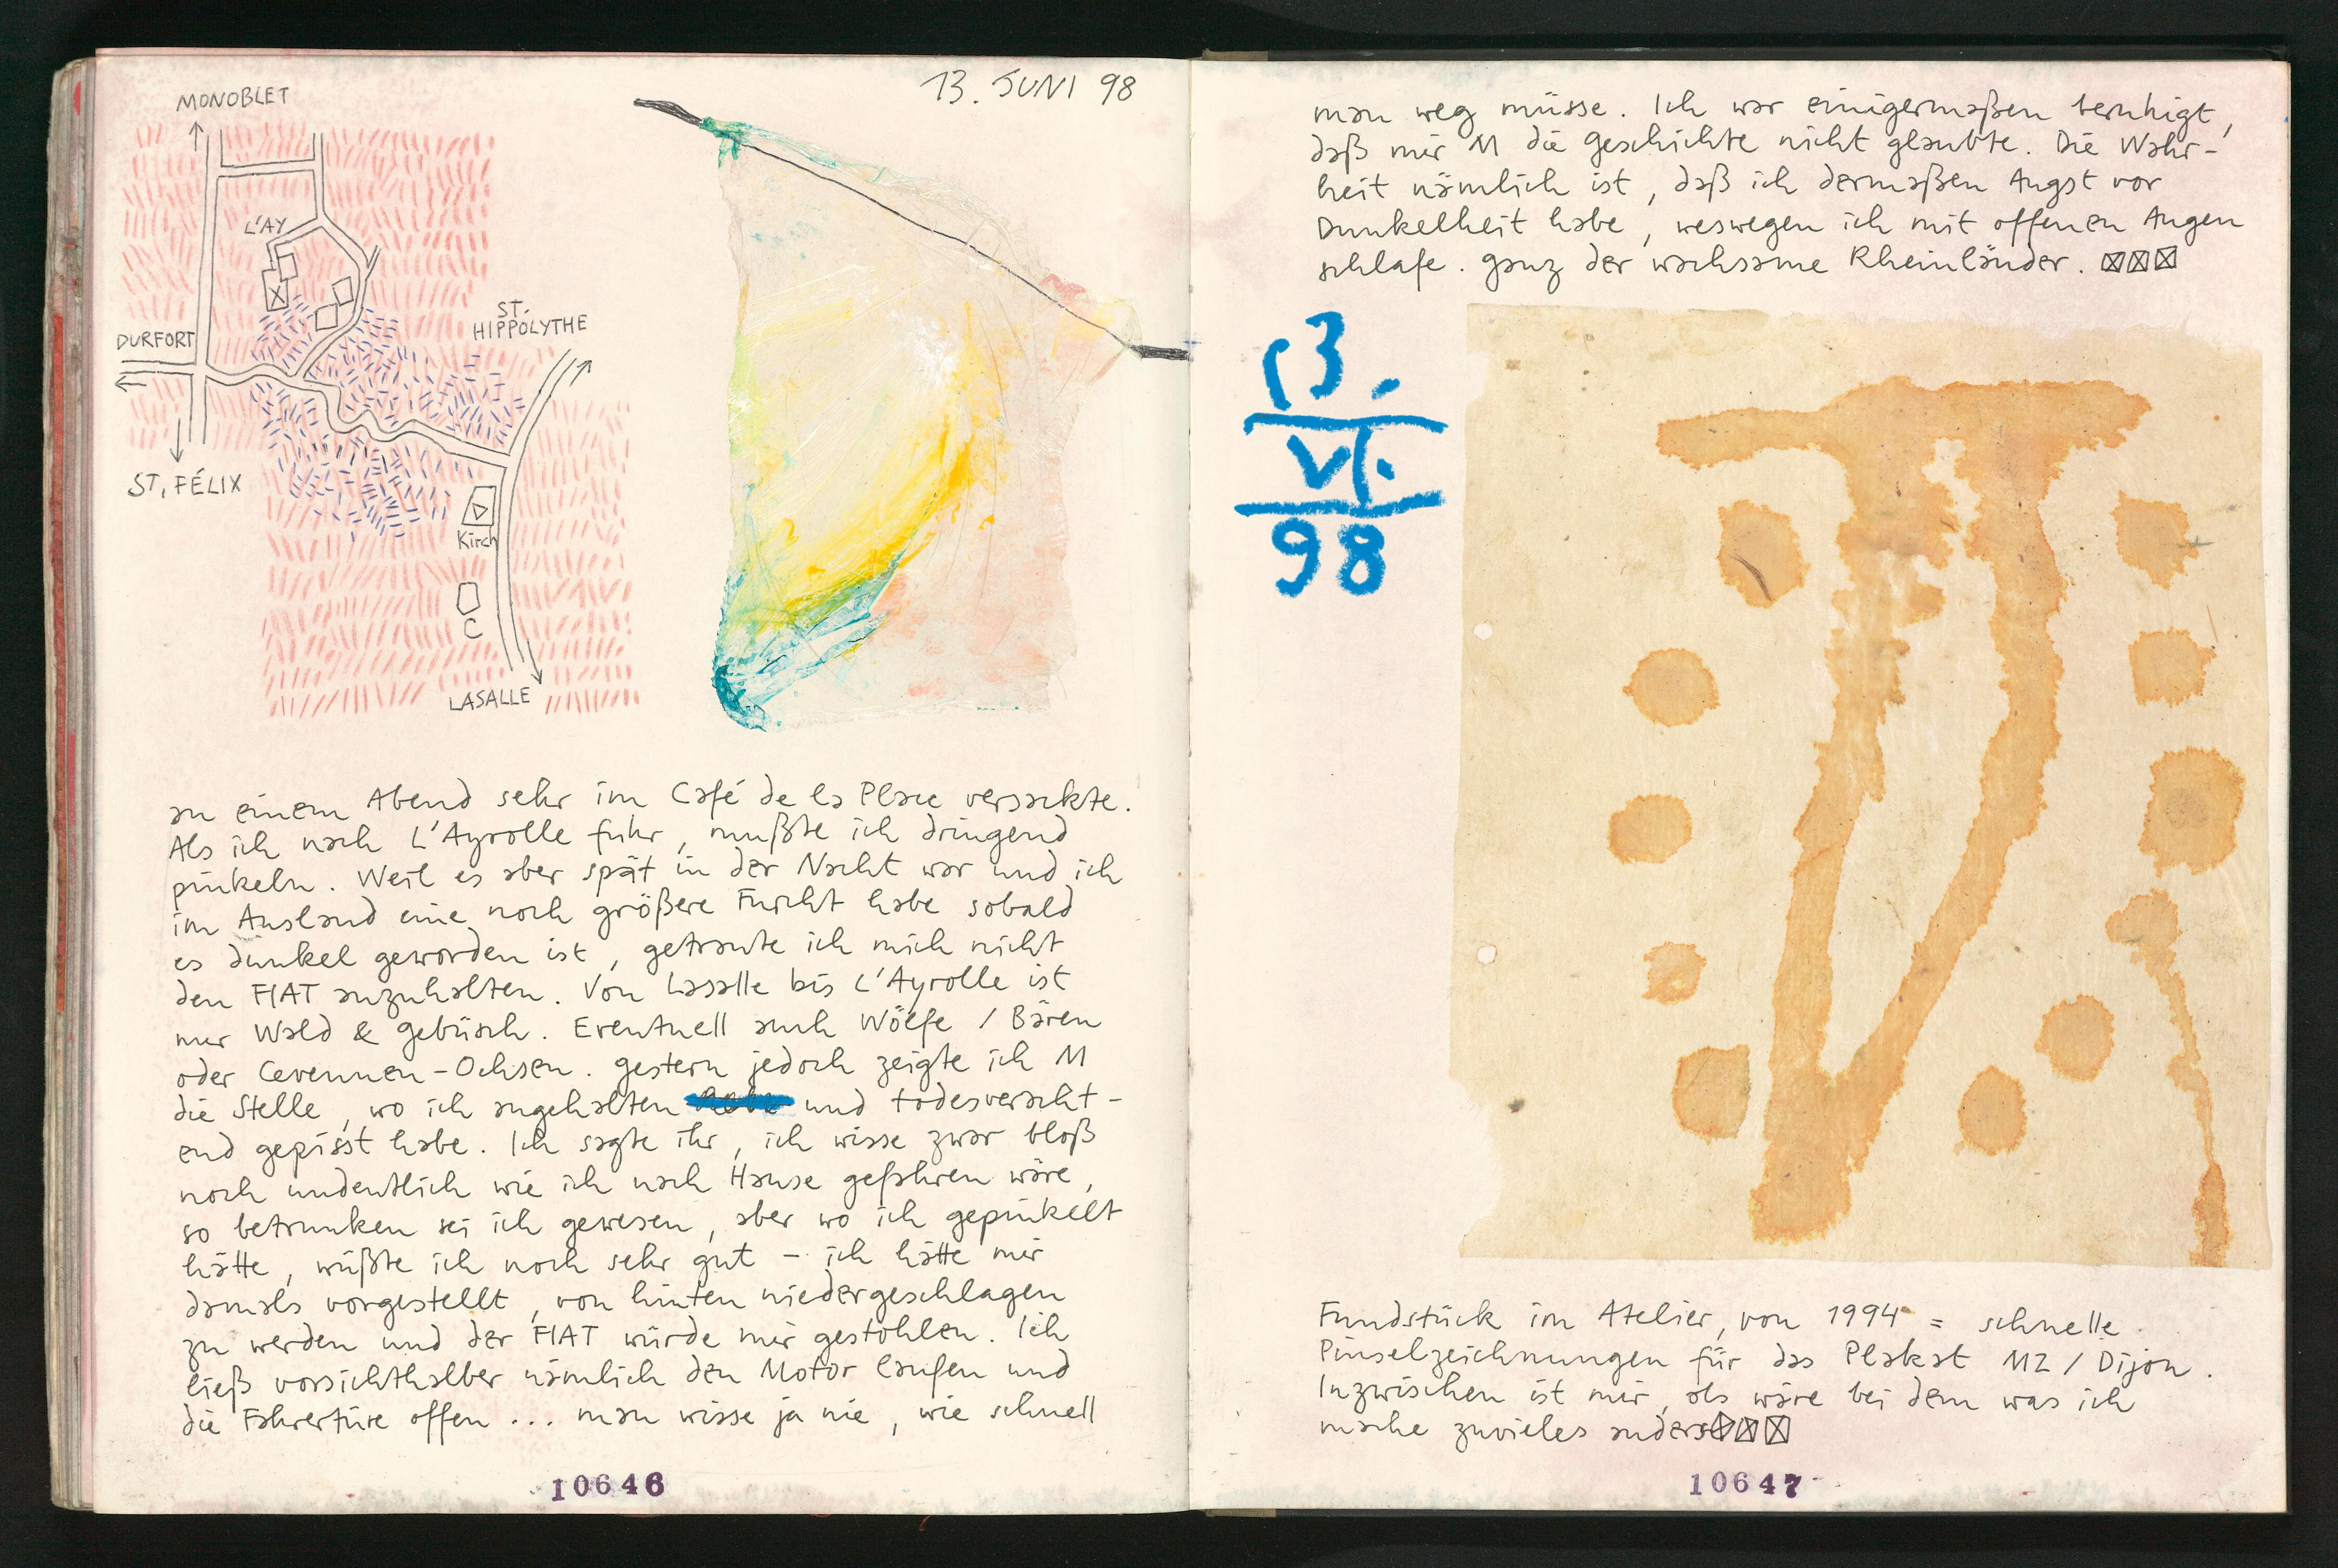 13. JUNI 98
MONOBLET
L'AY
ST.
HIPPOLYTHE
DURFORT
ST. FÉLIX
Kirch
C
LASALLE
an einem Abend sehr im Café de la Place versackte.
Als ich nach L'Ayrolle fuhr, mußte ich dringend
pinkeln. Weil es aber spät in der Nacht war und ich
im Ausland eine noch größere Furcht habe sobald
es dunkel geworden ist, getraute ich mich nicht
den FIAT anzuhalten. Von Lasalle bis L'Ayrolle ist
nur Wald & Gebüsch. Eventuell auch Wölfe / Bären
oder Cevennen-Ochsen. Gestern jedoch zeigte ich M
die Stelle, wo ich angehalten und todesveracht-
end gepisst habe. Ich sagte ihr, ich wisse zwar bloß
noch undeutlich wie ich nach Hause gefahren wäre,
so betrunken sei ich gewesen, aber wo ich gepinkelt
hätte, wüßte ich noch sehr gut - ich hätte mir
damals vorgestellt, von hinten niedergeschlagen
zu werden und der FIAT würde mir gestohlen. Ich
ließ vorsichthalber nämlich den Motor laufen und
die Fahrertüre offen ... man wisse ja nie, wie schnell
10646
man weg müsse. Ich war einigermaßen beruhigt,
daß mir M die Geschichte nicht glaubte. Die Wahr-
heit nämlich ist, daß ich dermaßen Angst vor
Dunkelheit habe, weswegen ich mit offenen Augen
schlafe. Ganz der wachsame Rheinländer.
13.
VI.
98
Fundstück im Atelier, von 1994 = schnelle
Pinselzeichnungen für das Plakat M2 / Dijon.
Inzwischen ist mir, als wäre bei dem was ich
mache zuvieles anders
10647